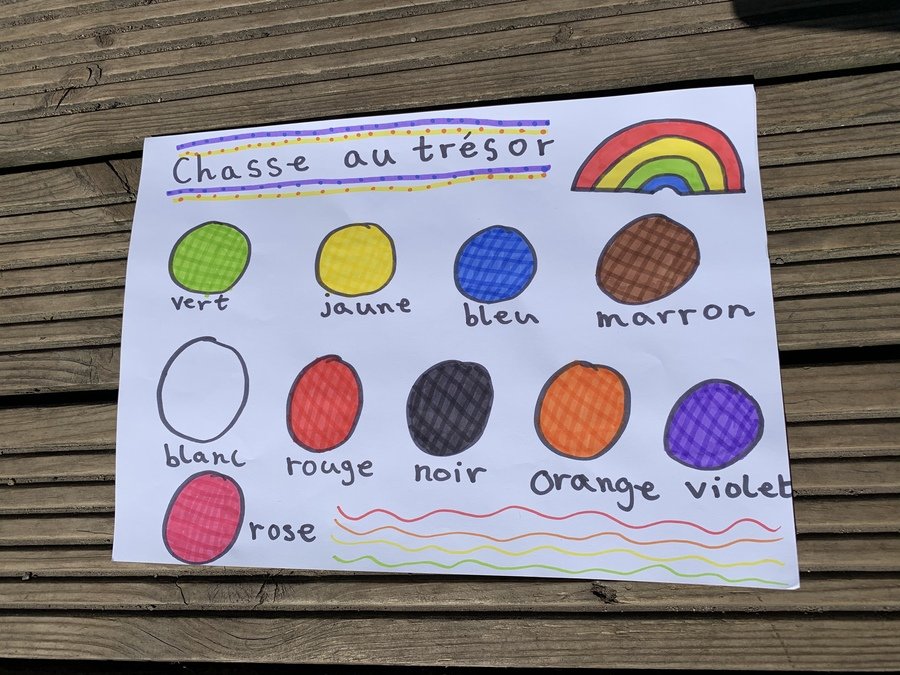 Chasse au trésor
vert jaune bleu marron
blanc rouge noir orange violet
rose